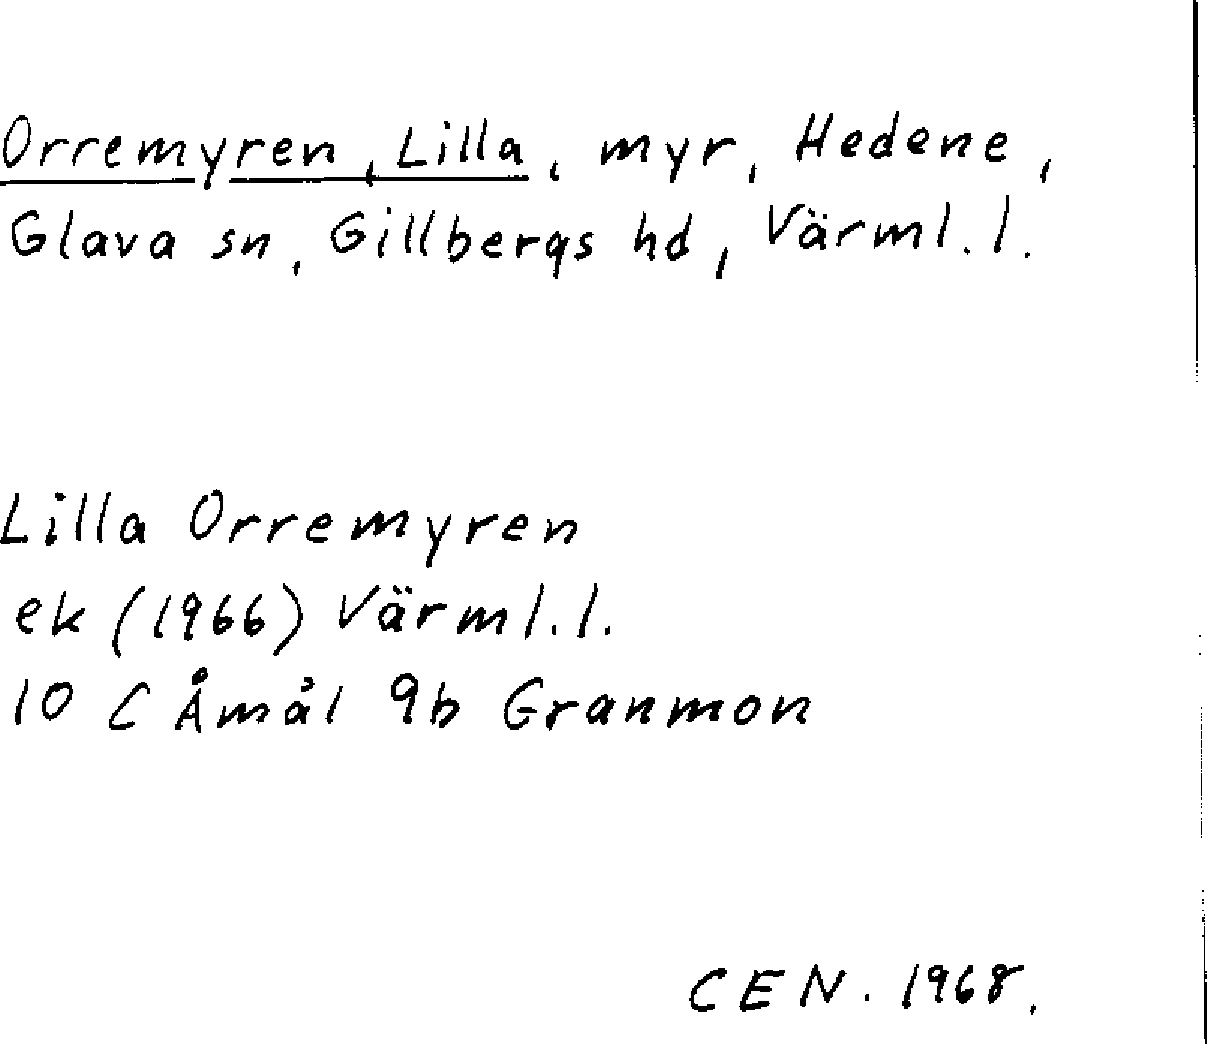 Orremyren, Lilla, myr, Hedene,
Glava sn, Gillbergs hd, Värml. l.
Lilla Orremyren
ek (1966) Värml. l.
10 C Åmål 9b Granmon
CEN. 1968.